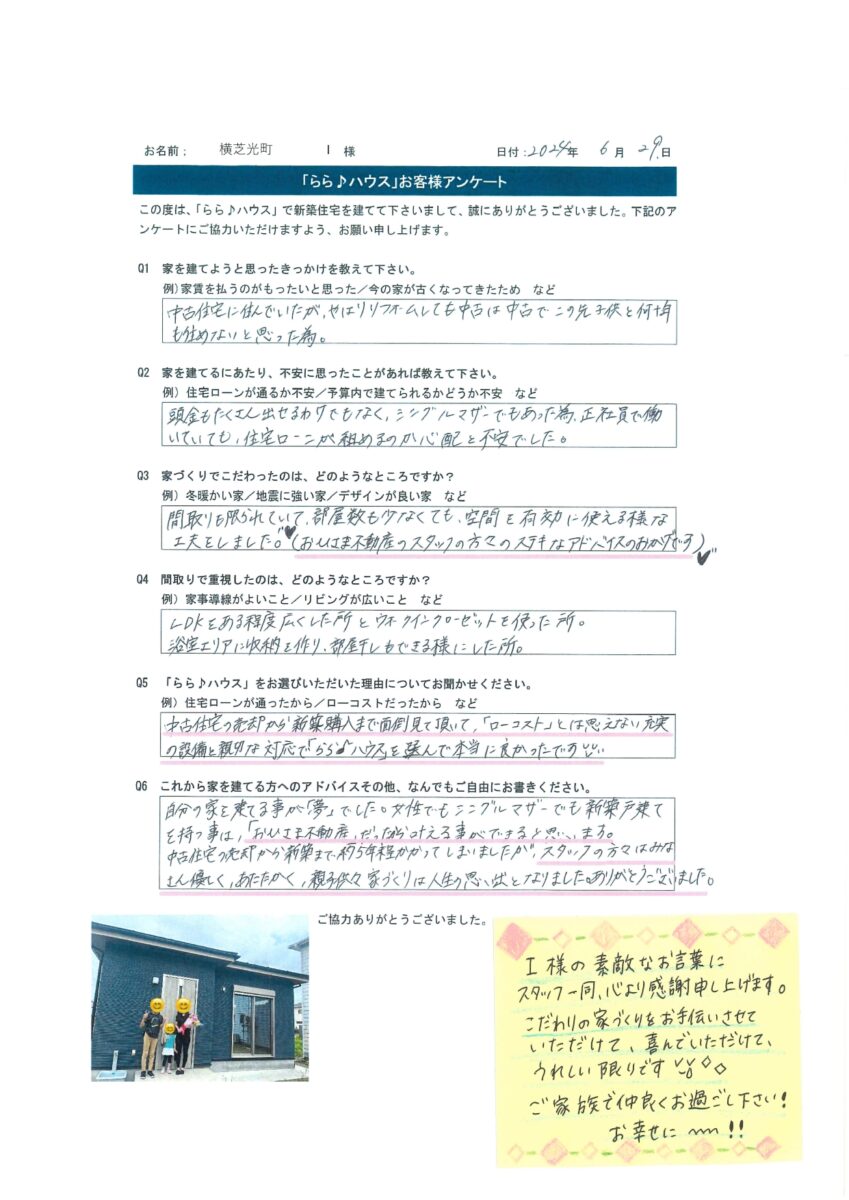 お名前： 横芝光町 I 様 日付：2024年 6月 29日
「らら♪ハウス」お客様アンケート
この度は、「らら♪ハウス」で新築住宅を建てて下さいまして、誠にありがとうございました。下記のア
ンケートにご協力いただけますよう、お願い申し上げます。
Q1 家を建てようと思ったきっかけを教えて下さい。
例）家賃を払うのがもったいと思った／今の家が古くなってきたため など
中古住宅に住んでいたが、やはりリフォームしても中古は中古でこの先子供と何十年
も住めないと思った為。
Q2 家を建てるにあたり、不安に思ったことがあれば教えて下さい。
例）住宅ローンが通るか不安／予算内で建てられるかどうか不安 など
頭金もたくさん出せるわけでもなく、シングルマザーでもあった為、正社員で働
いていても、住宅ローンが組めるのか心配と不安でした。
Q3 家づくりでこだわったのは、どのようなところですか？
例）冬暖かい家／地震に強い家／デザインが良い家 など
間取りも限られていて、部屋数も少なくても、空間を有効に使える様な
工夫をしました。♥（おひさま不動産のスタッフの方々のステキなアドバイスのおかげです）♥
Q4 間取りで重視したのは、どのようなところですか？
例）家事導線がよいこと／リビングが広いこと など
LDKをある程度広くした所とウォークインクローゼットを使った所。
浴室エリアに収納を作り、部屋干しもできる様にした所。
Q5 「らら♪ハウス」をお選びいただいた理由についてお聞かせください。
例）住宅ローンが通ったから／ローコストだったから など
中古住宅の売却から新築購入まで面倒見て頂いて、「ローコスト」とは思えない充実
の設備と親切な対応で「らら♪ハウス」を選んで本当に良かったです
Q6 これから家を建てる方へのアドバイスその他、なんでもご自由にお書きください。
自分の家を建てる事が「夢」でした。女性でもシングルマザーでも新築戸建て
を持つ事は、「おひさま不動産」だったから叶える事ができると思います。
中古住宅の売却から新築まで約5年程かかってしまいましたが、スタッフの方々はみな
さん優しく、あたたかく、親子供々家づくりは人生の思い出となりました。ありがとうございました。
ご協力ありがとうございました。
I 様の素敵なお言葉に
スタッフ一同、心より感謝申し上げます。
こだわりの家づくりをお手伝いさせて
いただけて、喜んでいただけて、
うれしい限りです
ご家族で仲良くお過ごし下さい！
お幸せに〜〜!!